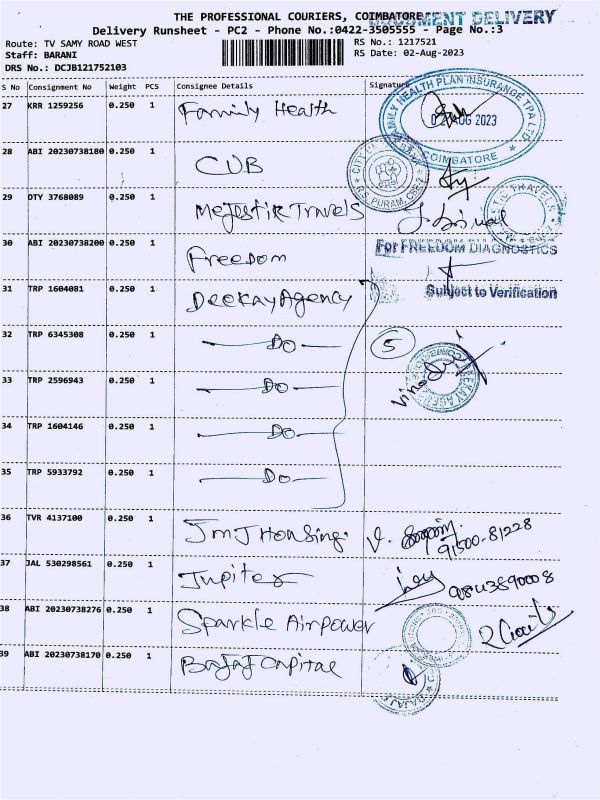 THE PROFESSIONAL COURIERS, COIMBATORE
DOCUMENT DELIVERY
Delivery Runsheet - PC2 - Phone No.:0422-3505555 - Page No.:3
Route: TV SAMY ROAD WEST
RS No.: 1217521
Staff: BARANI
RS Date: 02-Aug-2023
DRS No.: DCJB121752103
S No Consignment No Weight PCS Consignee Details Signature
27 KRR 1259256 0.250 1 Family Health
FAMILY HEALTH PLAN INSURANCE TPA LTD
02 AUG 2023
COIMBATORE
28 ABI 20230738180 0.250 1 CUB
R.S. PURAM, CBE-2
29 DTY 3768089 0.250 1 Mejestik Travels
TRAVELS
30 ABI 20230738200 0.250 1 Freedom
For FREEDOM DIAGNOSTICS
Subject to Verification
31 TRP 1604081 0.250 1 Deekay Agency
32 TRP 6345308 0.250 1 — Do —
5
33 TRP 2596943 0.250 1 — Do —
34 TRP 1604146 0.250 1 — Do —
35 TRP 5933792 0.250 1 — Do —
36 TVR 4137100 0.250 1 JMJ Housing.
91500-81228
37 JAL 530298561 0.250 1 Jupiter
9843890008
38 ABI 20230738276 0.250 1 Sparkle Airpower
39 ABI 20230738170 0.250 1 Bajaj Capital